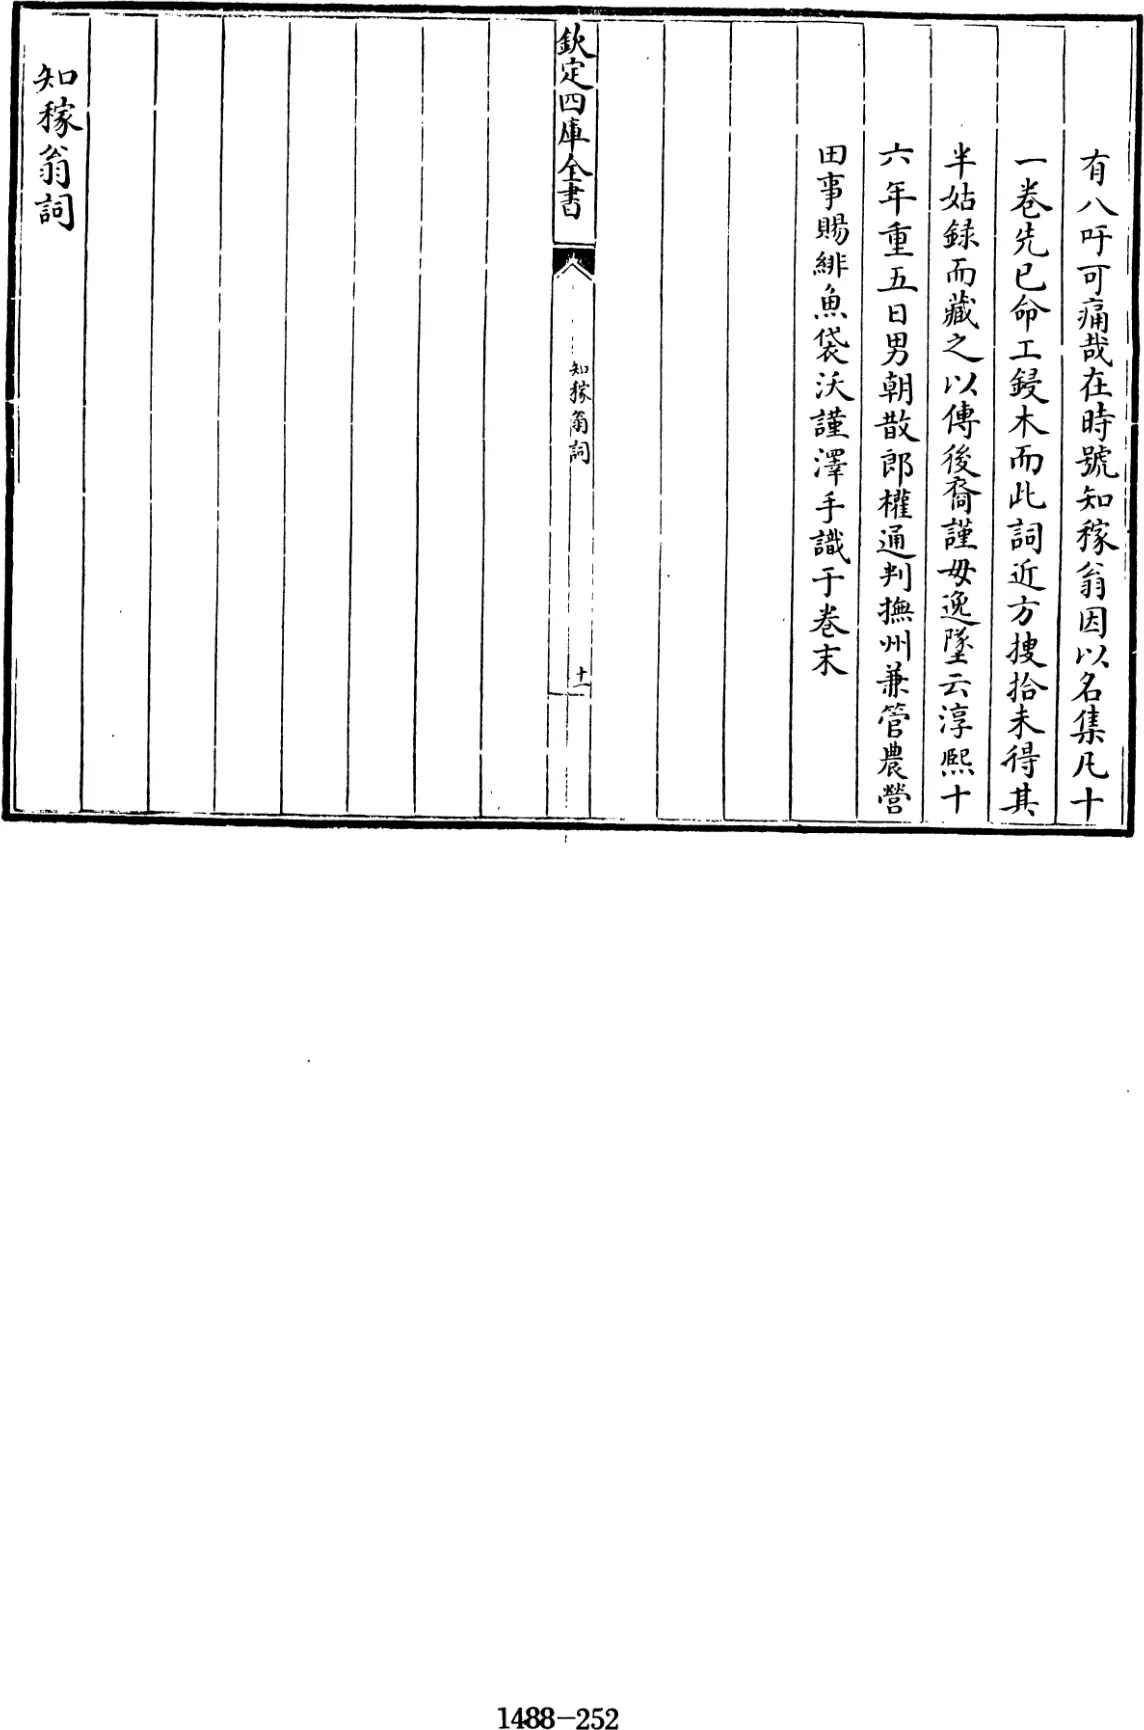 有八吁可痛哉在時號知稼翁因以名集凡十
一卷先已命工鋟木而此詞近方捜拾未得其
半姑録而藏之以傳後裔謹毋逸墜云淳熙十
六年重五日男朝散郎權通判撫州兼管農營
田事賜緋魚袋沃謹澤手識于卷末
欽定四庫全書
知稼翁詞
十一
知稼翁詞
1488-252